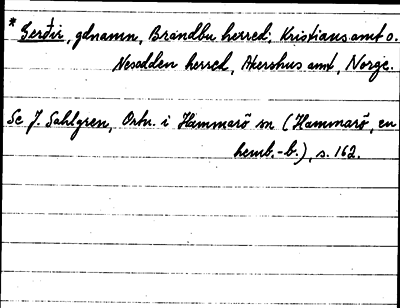 * Gerðir, gdnamn, Brandbu herred, Kristians amt o.
Nesodden herred, Akershus amt, Norge.
Se J. Sahlgren, Ortn. i Hammarö sn (Hammarö, en
hemb.-b.), s. 162.